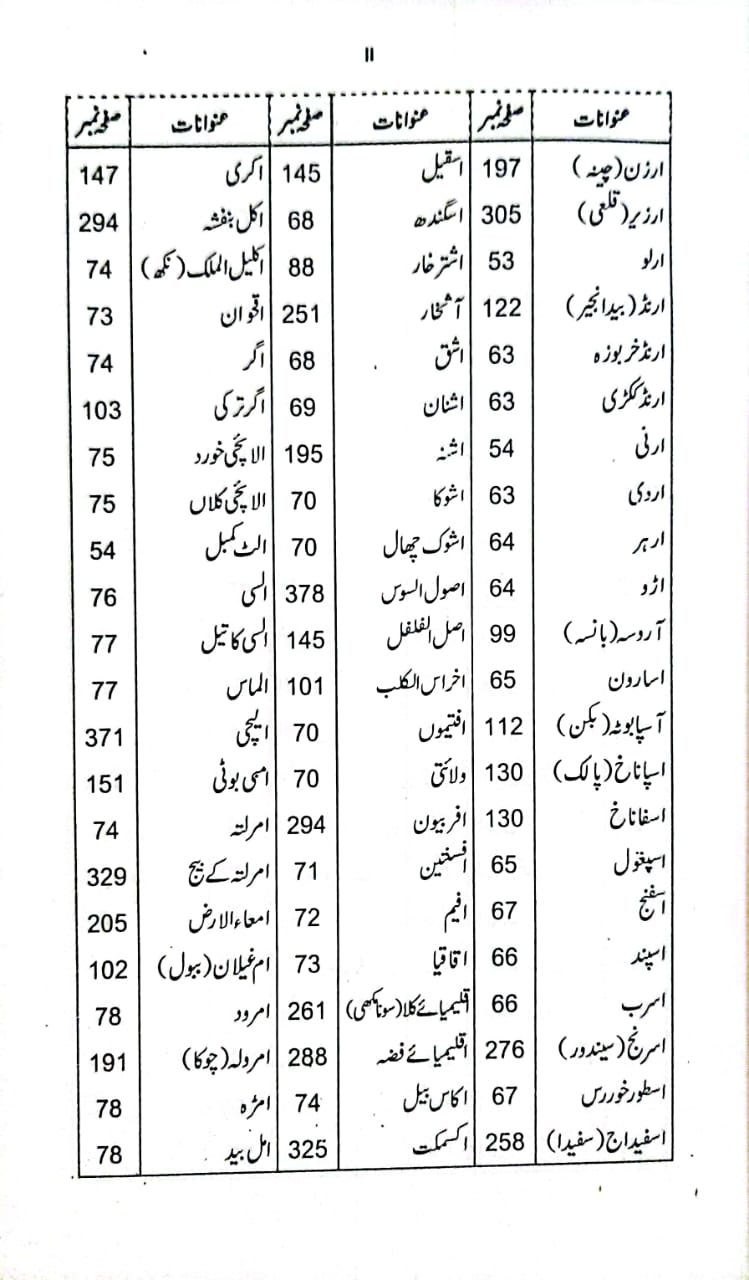 11
عنوانات صفحہ نمبر عنوانات صفحہ نمبر عنوانات صفحہ نمبر
ارزن (چینہ) 197 اسقیل 145 اکری 147
ارزیر (قلعی) 305 اسگندھ 68 اکل بنفشہ 294
ارلو 53 اشتر خار 88 اکلیل الملک (نکھ) 74
ارنڈ (بیدانجیر) 122 آشخار 251 اقحوان 73
ارنڈ خربوزہ 63 اشق 68 اگر 74
ارنڈ ککڑی 63 اشنان 69 اگر ترکی 103
ارنی 54 اشنہ 195 الائچی خورد 75
اردی 63 اشوکا 70 الائچی کلاں 75
ارہر 64 اشوک چھال 70 الٹ کمبل 54
اڑو 64 اصول السوس 378 السی 76
آروسہ (بانسہ) 99 اصل الفلفل 145 السی کا تیل 77
اسارون 65 اخراس الکلب 101 الماس 77
آسپا بوٹہ (بکن) 112 افتیموں 70 ایلچی 371
اسپاناخ (پالک) 130 ولائتی 70 امسی بوٹی 151
اسفاناخ 130 افربیون 294 امرلتہ 74
اسپغول 65 افسنتین 71 امرلتہ کے بیج 329
اسفنج 67 افیم 72 امعاء الارض 205
اسپند 66 اقاقیا 73 ام غیلان (ببول) 102
اسرب 66 اقلیمیائے کلا (سونا مکھی) 261 امرود 78
اسرنج (سیندور) 276 اقلیمیائے فضہ 288 امرولہ (چوکا) 191
اسطور خوررس 67 اکاس بیل 74 امڑہ 78
اسفیداج (سفیدا) 258 اکسمکت 325 امل بید 78